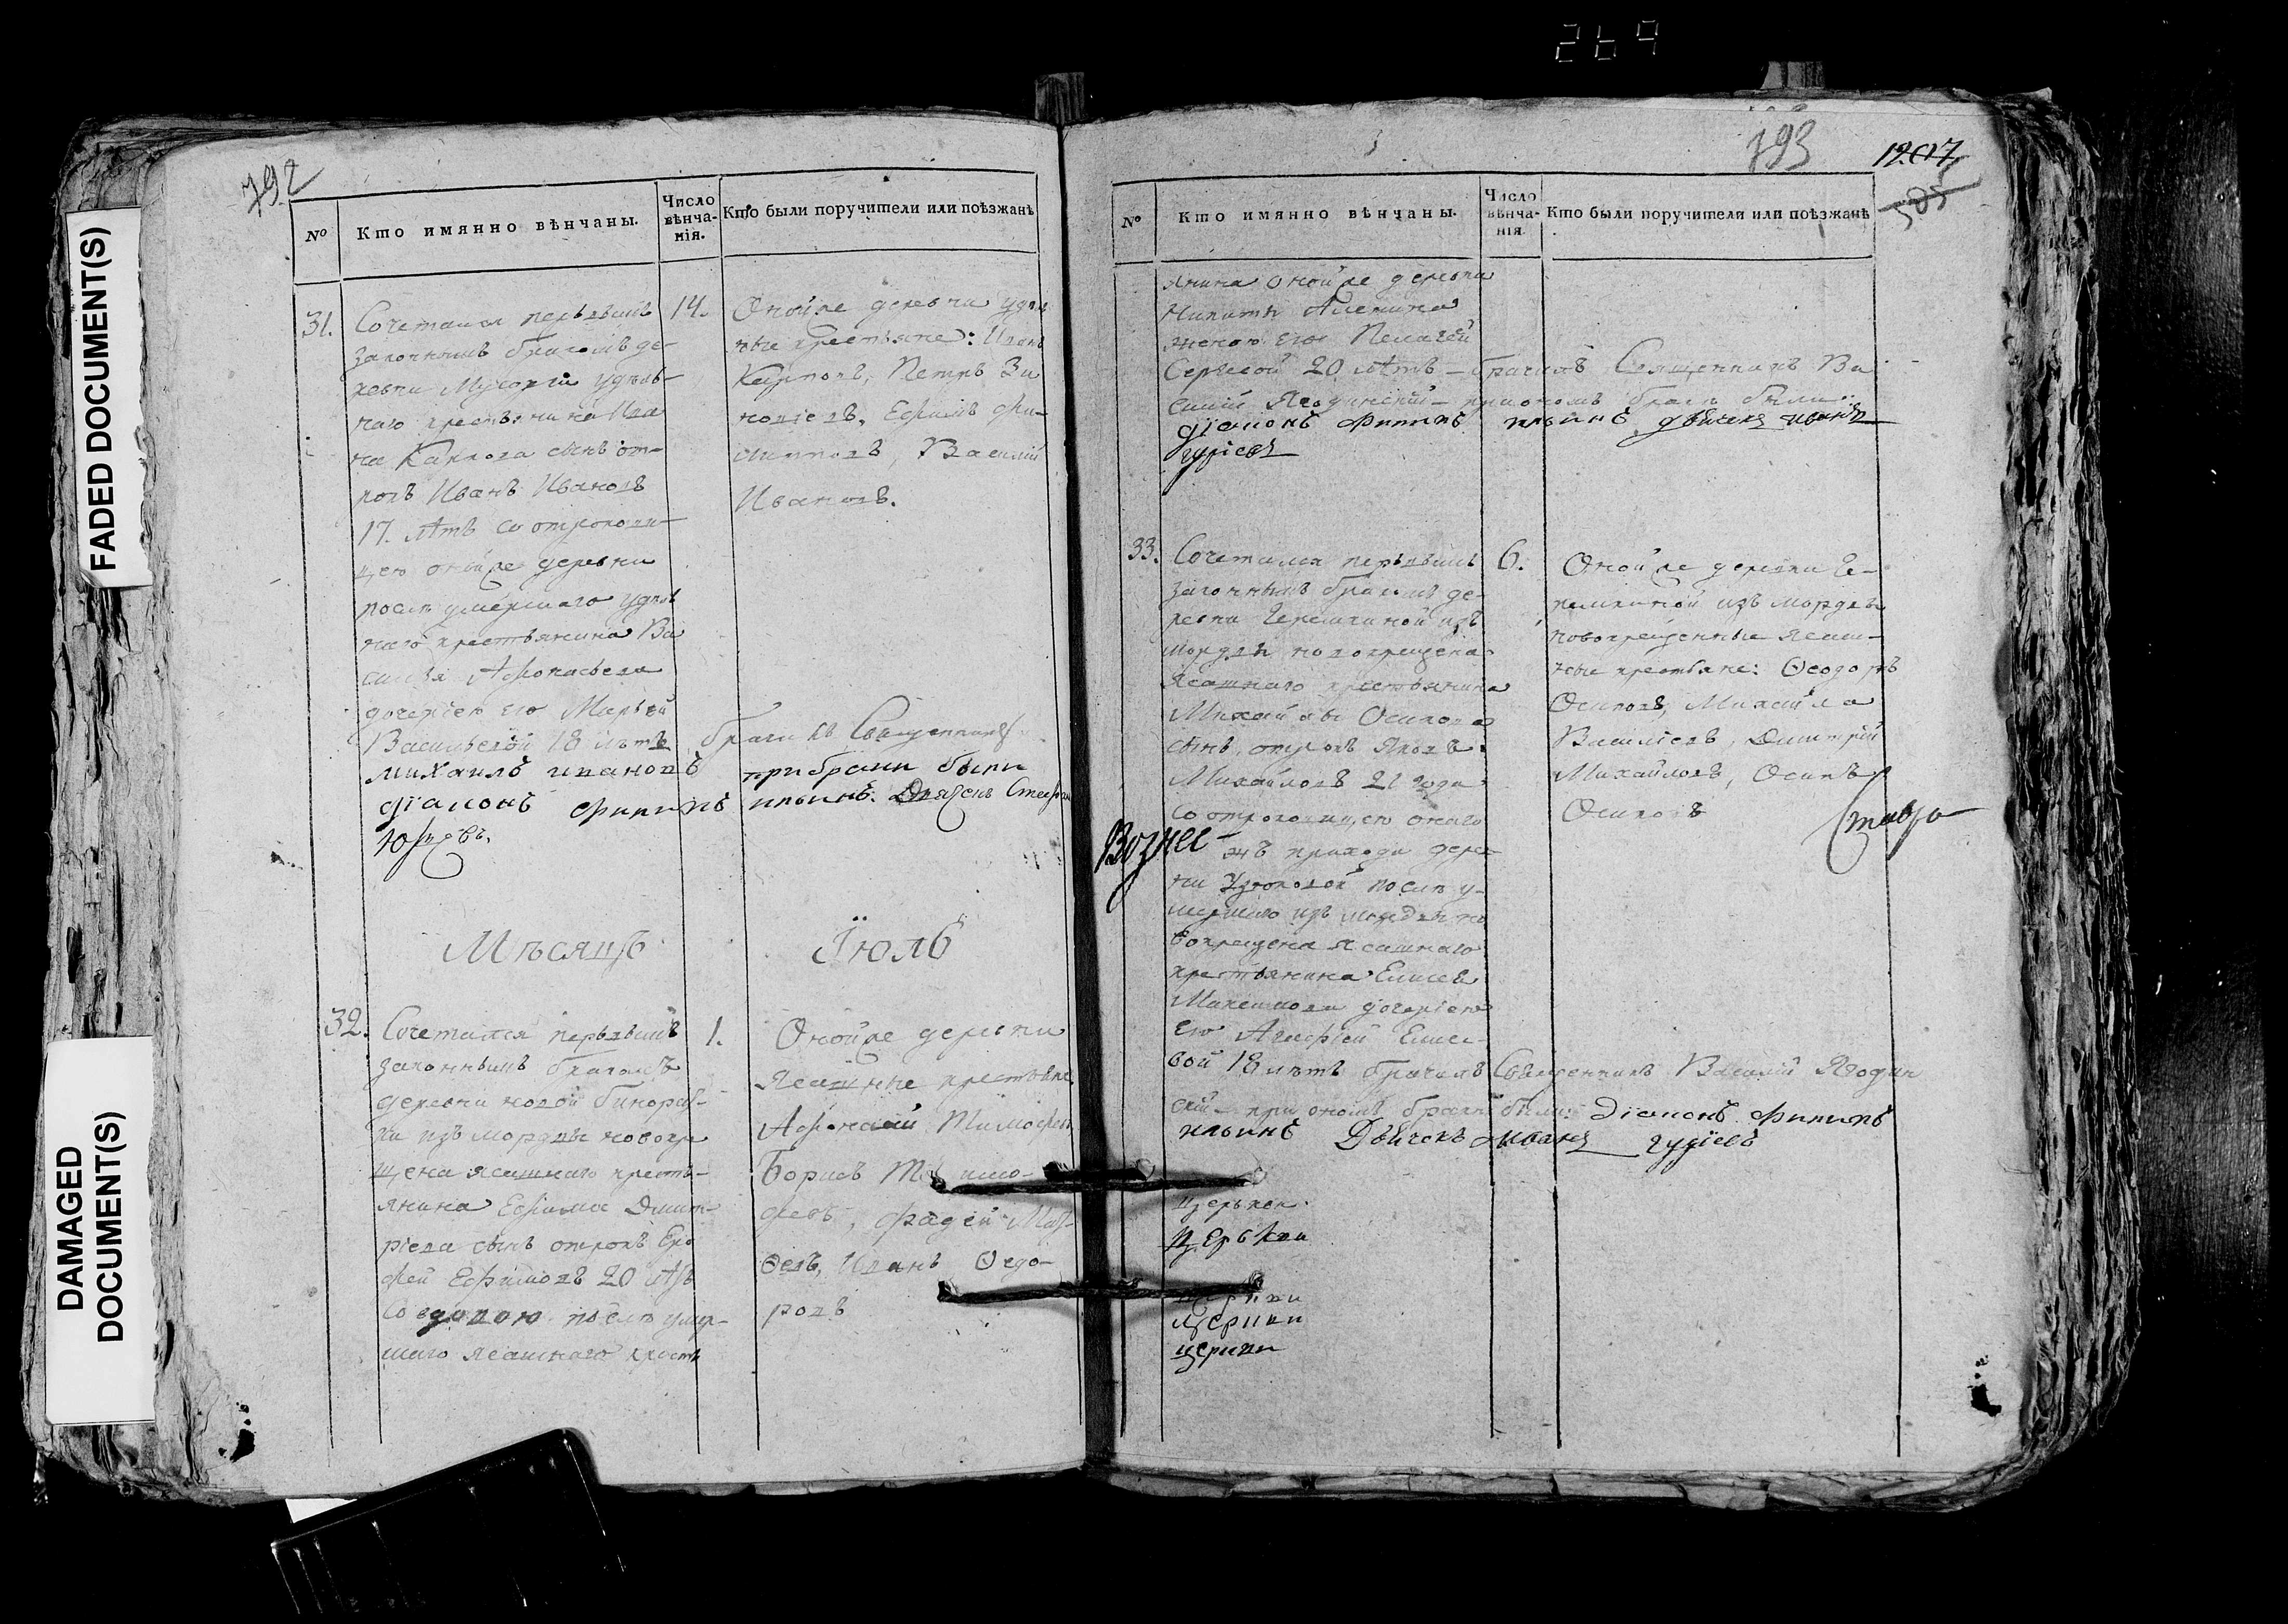 269
FADED DOCUMENT(S)
DAMAGED
DOCUMENT(S)
792
№
Кто имянно вѣнчаны.
Число
вѣнча-
нія.
Кто были поручители или поѣзжанѣ
31.
Сочетался первымъ
законнымъ бракомъ де-
ревни удѣль-
наго крестьянина Ива
на Карпова сынъ от-
рокъ Иванъ Ивановъ
17. лѣтъ со отрокови-
цею оной же деревни
послѣ умершаго удѣль
наго крестьянина Ва
силья Афонасьева
дочерїею его Марьей
Васильевой 18 лѣтъ
14.
Оной же деревни удѣль
ные крестьяне: Иванъ
Карповъ, Петръ Зи
новїевъ, Ефимъ Фи-
липповъ, Василий
Ивановъ.
бракъ Священникъ
михаилъ ивановъ при бракѣ были
дїаконъ филипъ ильинъ.
Юрьевъ.
Мѣсяцъ Їюль
32.
Сочетался первымъ
законнымъ бракомъ
деревни новой Бинорад-
ки изъ мордвы новокре
щена ясашнаго кресть-
янина Ефима Дмит-
рїева сынъ отрокъ Еро
фей Ефимовъ 20 лѣтъ
со вдовою послѣ умер-
шаго ясашнаго кресть
1.
Оной же деревни
Ясашные крестьяне
Афонасий Тимофеев
Борисъ Тимо-
феевъ, Фадей Мат-
ѳевъ, Иванъ Ѳедо-
ровъ
793
1207
№
Кто имянно вѣнчаны.
Число
вѣнча-
нія.
Кто были поручители или поѣзжанѣ
янина оной же деревни
Никиты
женою его Пелагеей
Сергеевой 20 лѣтъ – брачилъ Священникъ Ва
силий Ягодинский – при ономъ бракѣ были:
дїаконъ филипъ ильинъ дьячекъ иванъ
гурїевъ
33.
Сочетался первымъ
законнымъ бракомъ де-
ревни изъ
мордвы новокрещена
Ясашнаго крестьянина
Михайлы Осипова
сынъ отрокъ Яковъ
Михайловъ 21 года
со отроковицею онаго
жъ прихода дерев-
ни послѣ у-
мершаго изъ мордвы но
вокрещена ясашнаго
крестьянина Елисея
Максимова дочерїею
его Агафїей Елисе-
вой 18 лѣтъ брачилъ Священникъ Василий Ягодин
ский – при ономъ бракѣ были: Дїаконъ филипъ
ильинъ Дьячекъ иванъ гурїевъ
6.
Оной же деревни Че-
изъ мордвы
новокрещенные ясаш-
ные крестьяне: Ѳеодоръ
Осиповъ, Михайла
Василїевъ, Дмитрий
Михайловъ, Осипъ
Осиповъ
Вознес-
Ставро
церькви
церькви
церкви
церкви
церкви